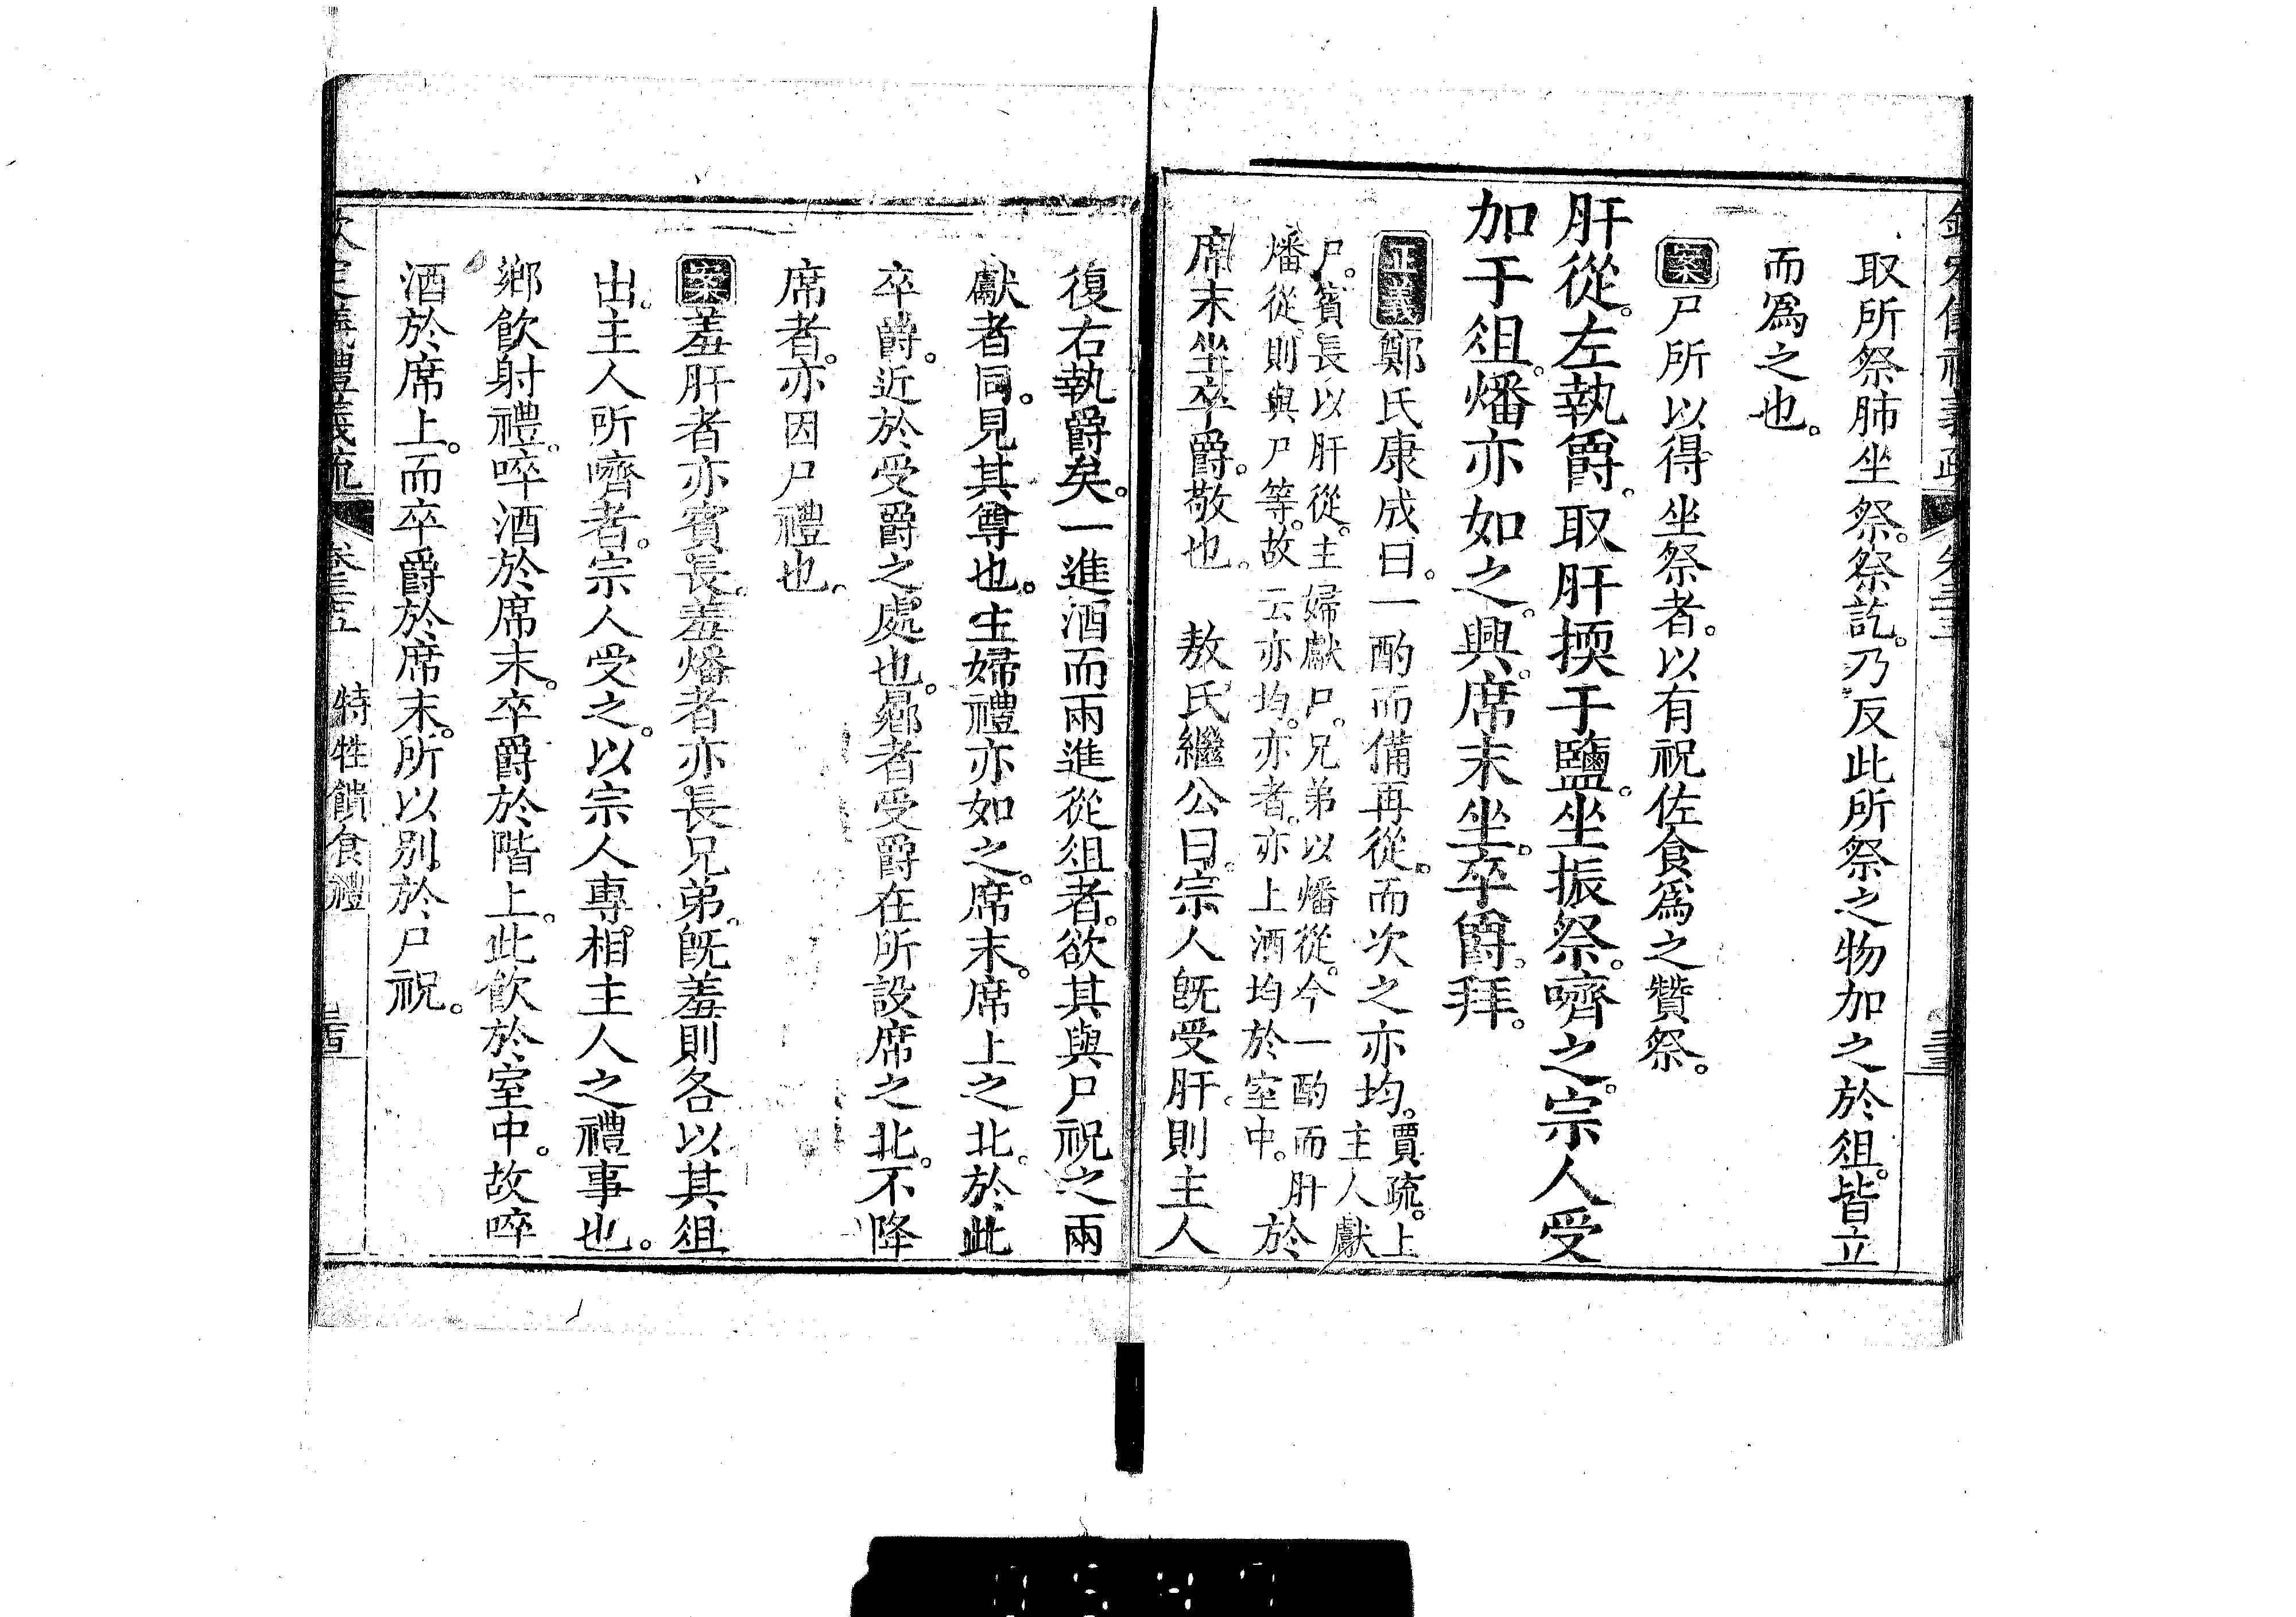 取所祭肺坐祭。祭訖。乃反此所祭之物加之於俎。皆立
而爲之也。
案尸所以得坐祭者。以有祝佐食爲之贊祭。
肝從。左執爵。取肝擩于鹽。坐振祭。嚌之。宗人受
加于俎。燔亦如之。興。席末坐。卒爵。拜。
正義鄭氏康成曰。一酌而備再從。而次之亦均。賈疏。上
主人獻
尸。賓長以肝從。主婦獻尸。兄弟以燔從。今一酌而肝
燔從。則與尸等。故云亦均。亦者。亦上酒均於室中。於
席末坐卒爵。敬也。敖氏繼公曰。宗人旣受肝。則主人
復右執爵矣。一進酒而兩進從俎者。欲其與尸祝之兩
獻者同。見其尊也。主婦禮亦如之。席末。席上之北。於此
卒爵。近於受爵之處也。曏者受爵在所設席之北。不降
席者。亦因尸禮也。
案羞肝者亦賓長。羞燔者亦長兄弟。旣羞則各以其俎
出。主人所嚌者。宗人受之。以宗人專相主人之禮事也。
鄉飲射禮。啐酒於席末。卒爵於階上。此飲於室中。故啐
酒於席上。而卒爵於席末。所以別於尸祝。
欽定儀禮義疏 卷三十五 特牲饋食禮